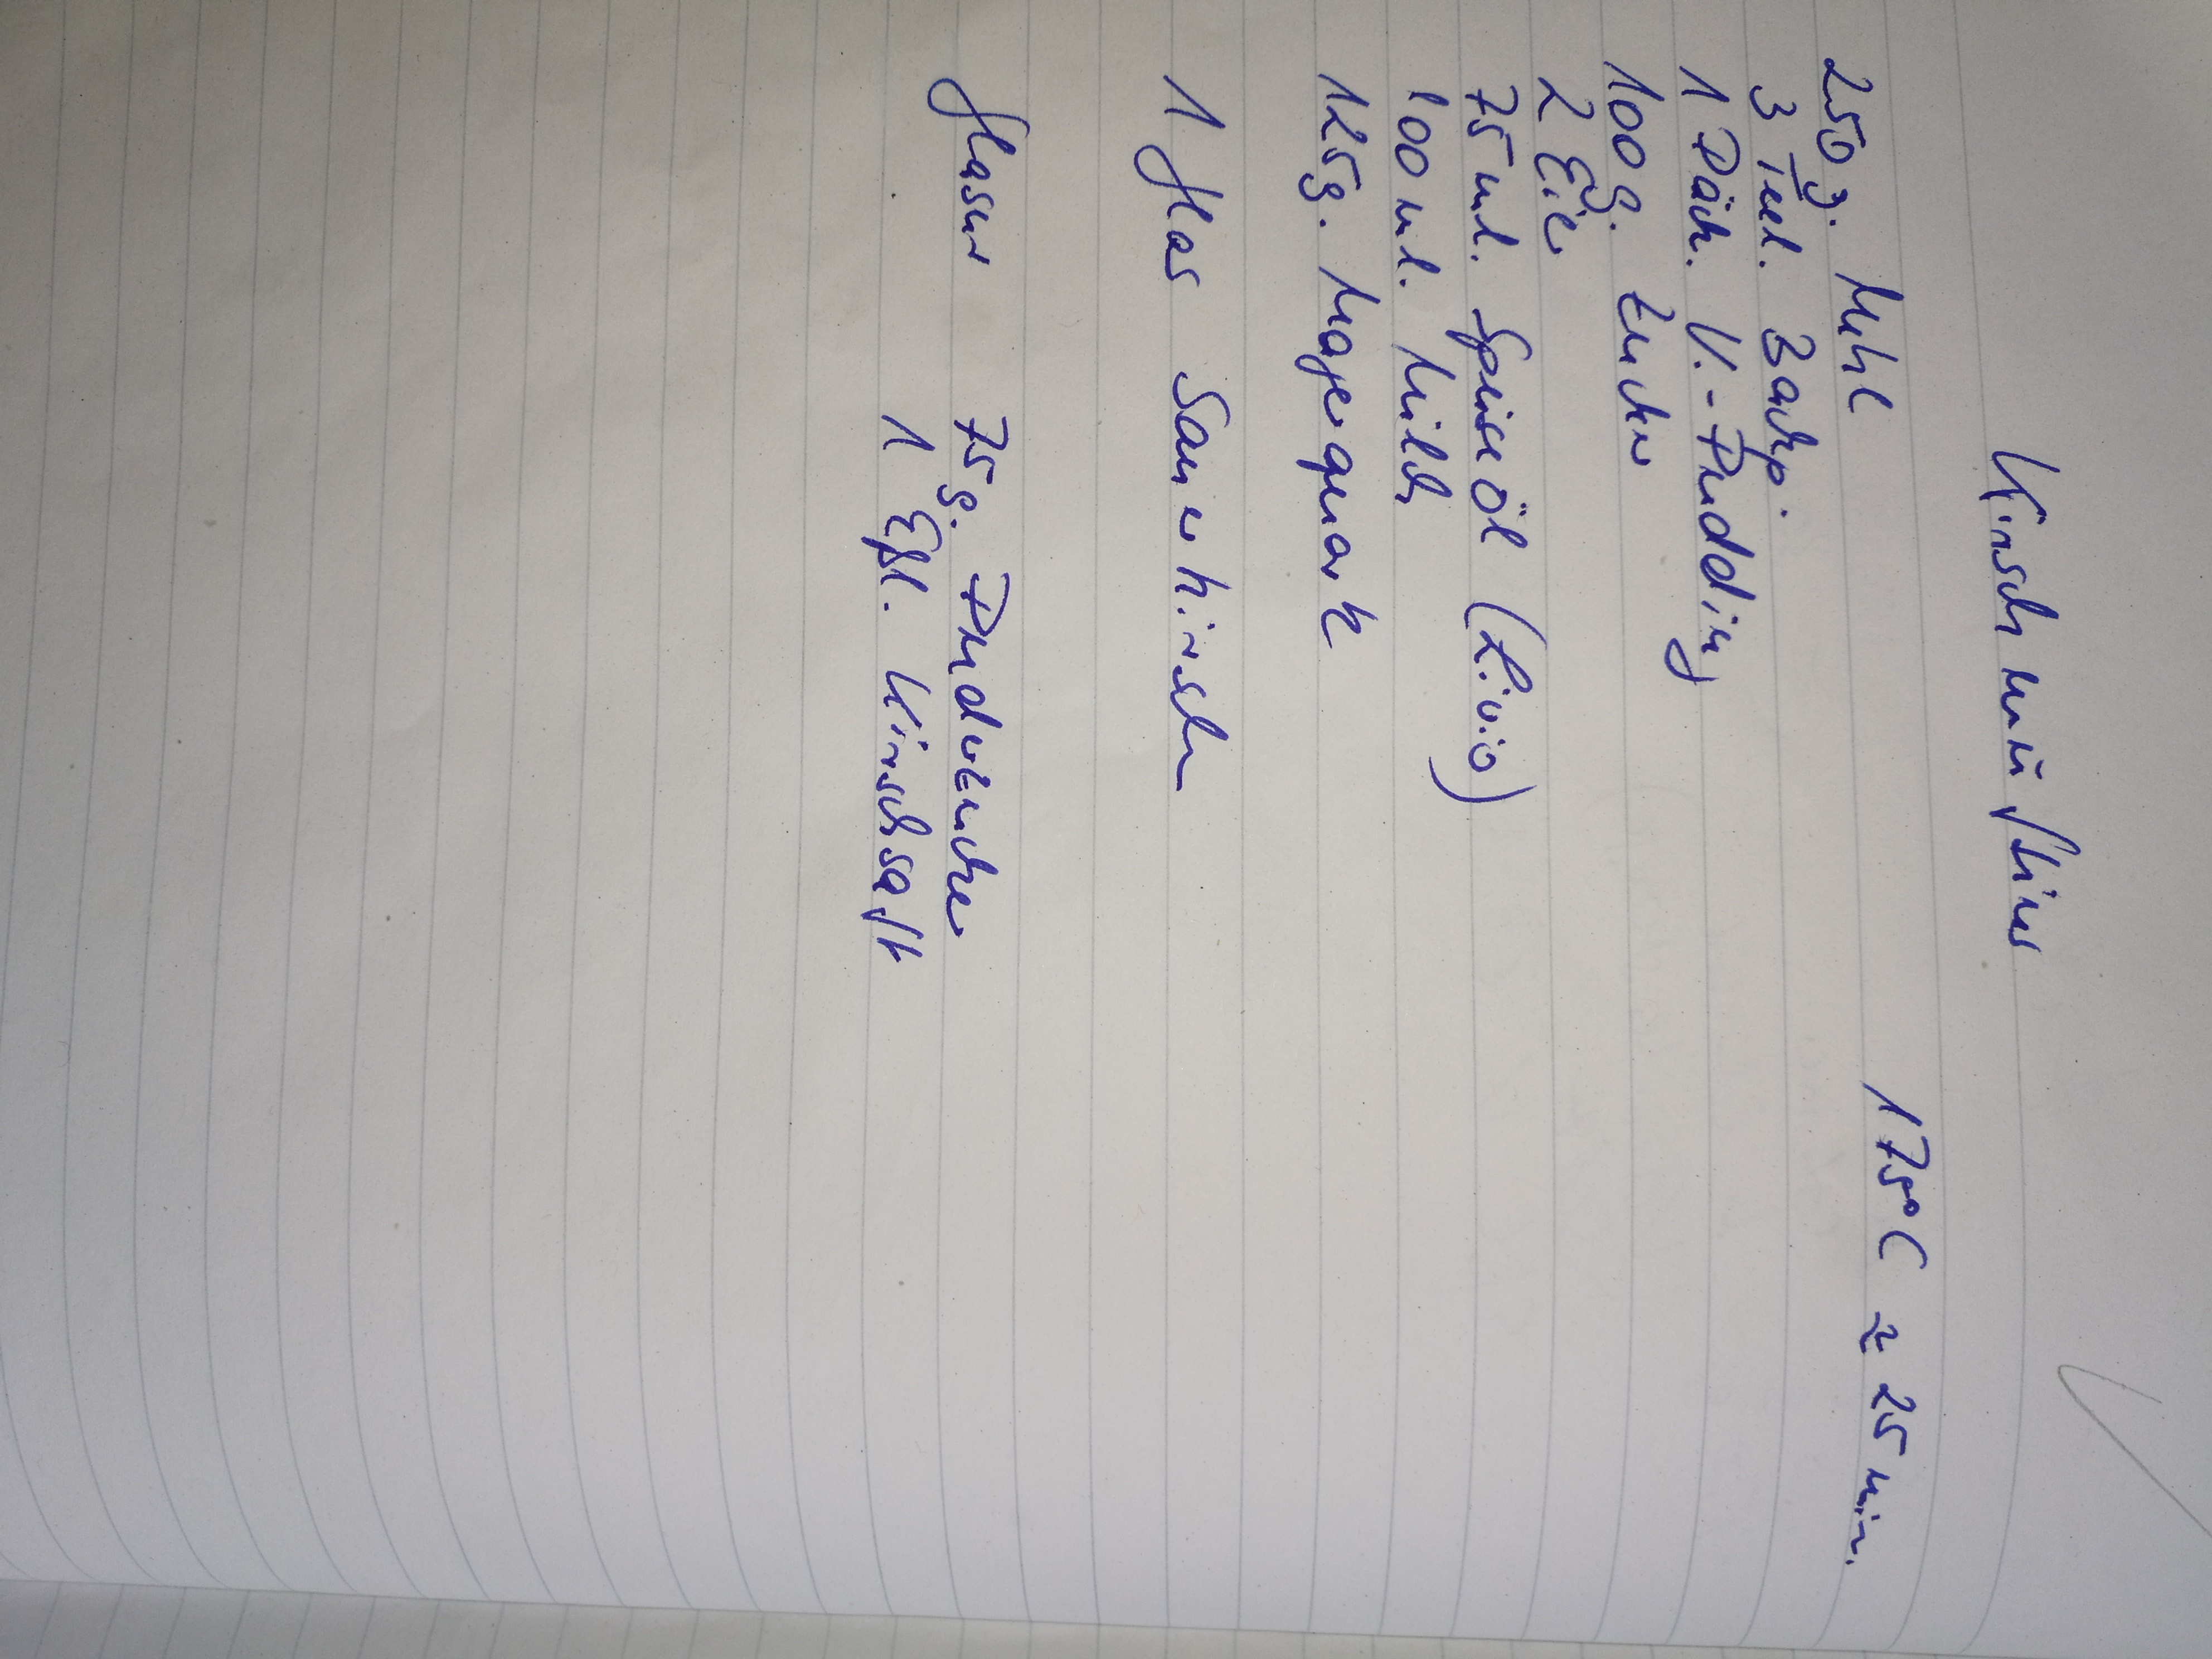 Kirschmüffins
175°C ≈ 25 min.
250 g. Mehl
3 Teel. Backp.
1 Päck. V.-Pudding
100 g. Zucker
2 Eier
75 ml. Speiseöl (Livio)
100 ml. Milch
125 g. Magerquark
1 Glas Sauerkirsch
Glasur 75 g. Puderzucker
1 Eßl. Kirschsaft